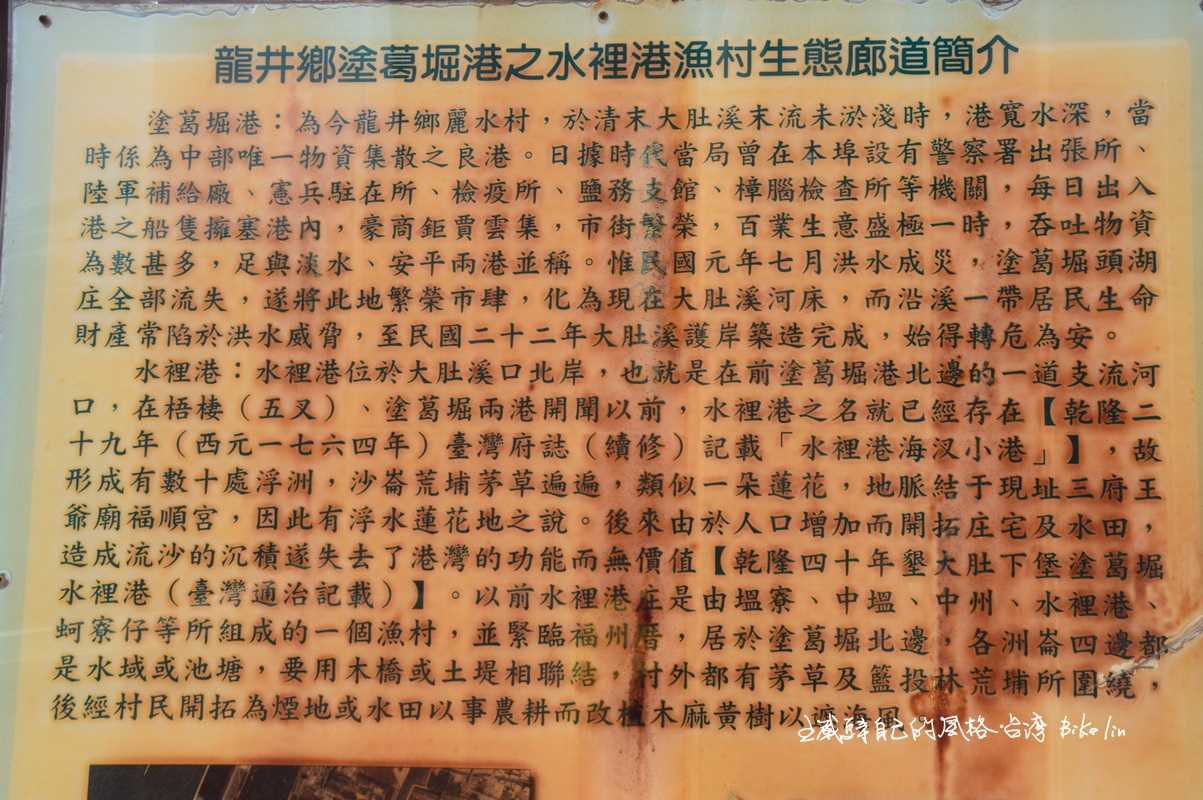 龍井鄉塗葛堀港之水裡港漁村生態廊道簡介
塗葛堀港：為今龍井鄉麗水村，於清末大肚溪末流未淤淺時，港寬水深，當
時係為中部唯一物資集散之良港。日據時代當局曾在本埠設有警察署出張所、
陸軍補給廠、憲兵駐在所、檢疫所、鹽務支館、樟腦檢查所等機關，每日出入
港之船隻擁塞港內，豪商鉅賈雲集，市街繁榮，百業生意盛極一時，吞吐物資
為數甚多，足與淡水、安平兩港並稱。惟民國元年七月洪水成災，塗葛堀頭湖
庄全部流失，遂將此地繁榮市肆，化為現在大肚溪河床，而沿溪一帶居民生命
財產常陷於洪水威脅，至民國二十二年大肚溪護岸築造完成，始得轉危為安。
水裡港：水裡港位於大肚溪口北岸，也就是在前塗葛堀港北邊的一道支流河
口，在梧棲（五叉）、塗葛堀兩港開聞以前，水裡港之名就已經存在【乾隆二
十九年（西元一七六四年）臺灣府誌（續修）記載「水裡港海汊小港」】，故
形成有數十處浮洲，沙崙荒埔茅草遍遍，類似一朵蓮花，地脈結于現址三府王
爺廟福順宮，因此有浮水蓮花地之說。後來由於人口增加而開拓庄宅及水田，
造成流沙的沉積遂失去了港灣的功能而無價值【乾隆四十年墾大肚下堡塗葛堀
水裡港（臺灣通治記載）】。以前水裡港庄是由塭寮、中塭、中州、水裡港、
蚵寮仔等所組成的一個漁村，並緊臨福州厝，居於塗葛堀北邊，各洲崙四邊都
是水域或池塘，要用木橋或土堤相聯結，村外都有茅草及籃投林荒埔所圍繞，
後經村民開拓為煙地或水田以事農耕而改植木麻黃樹以遮海風。
自己的風格 台灣 Biko lin